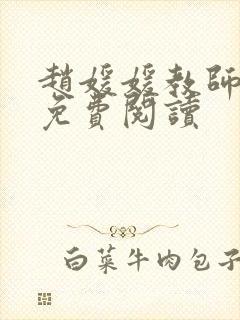 趙媛媛教師
免費閱讀
白菜牛肉包子